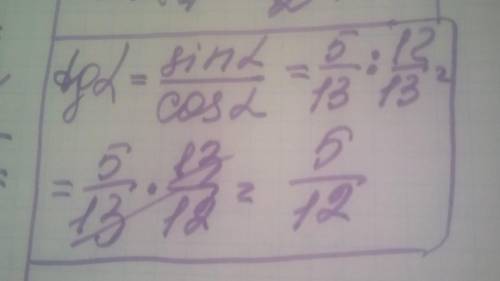 tgα = sinα/cosα = 5/13 : 12/13 =
= 5/13 · 13/12 = 5/12